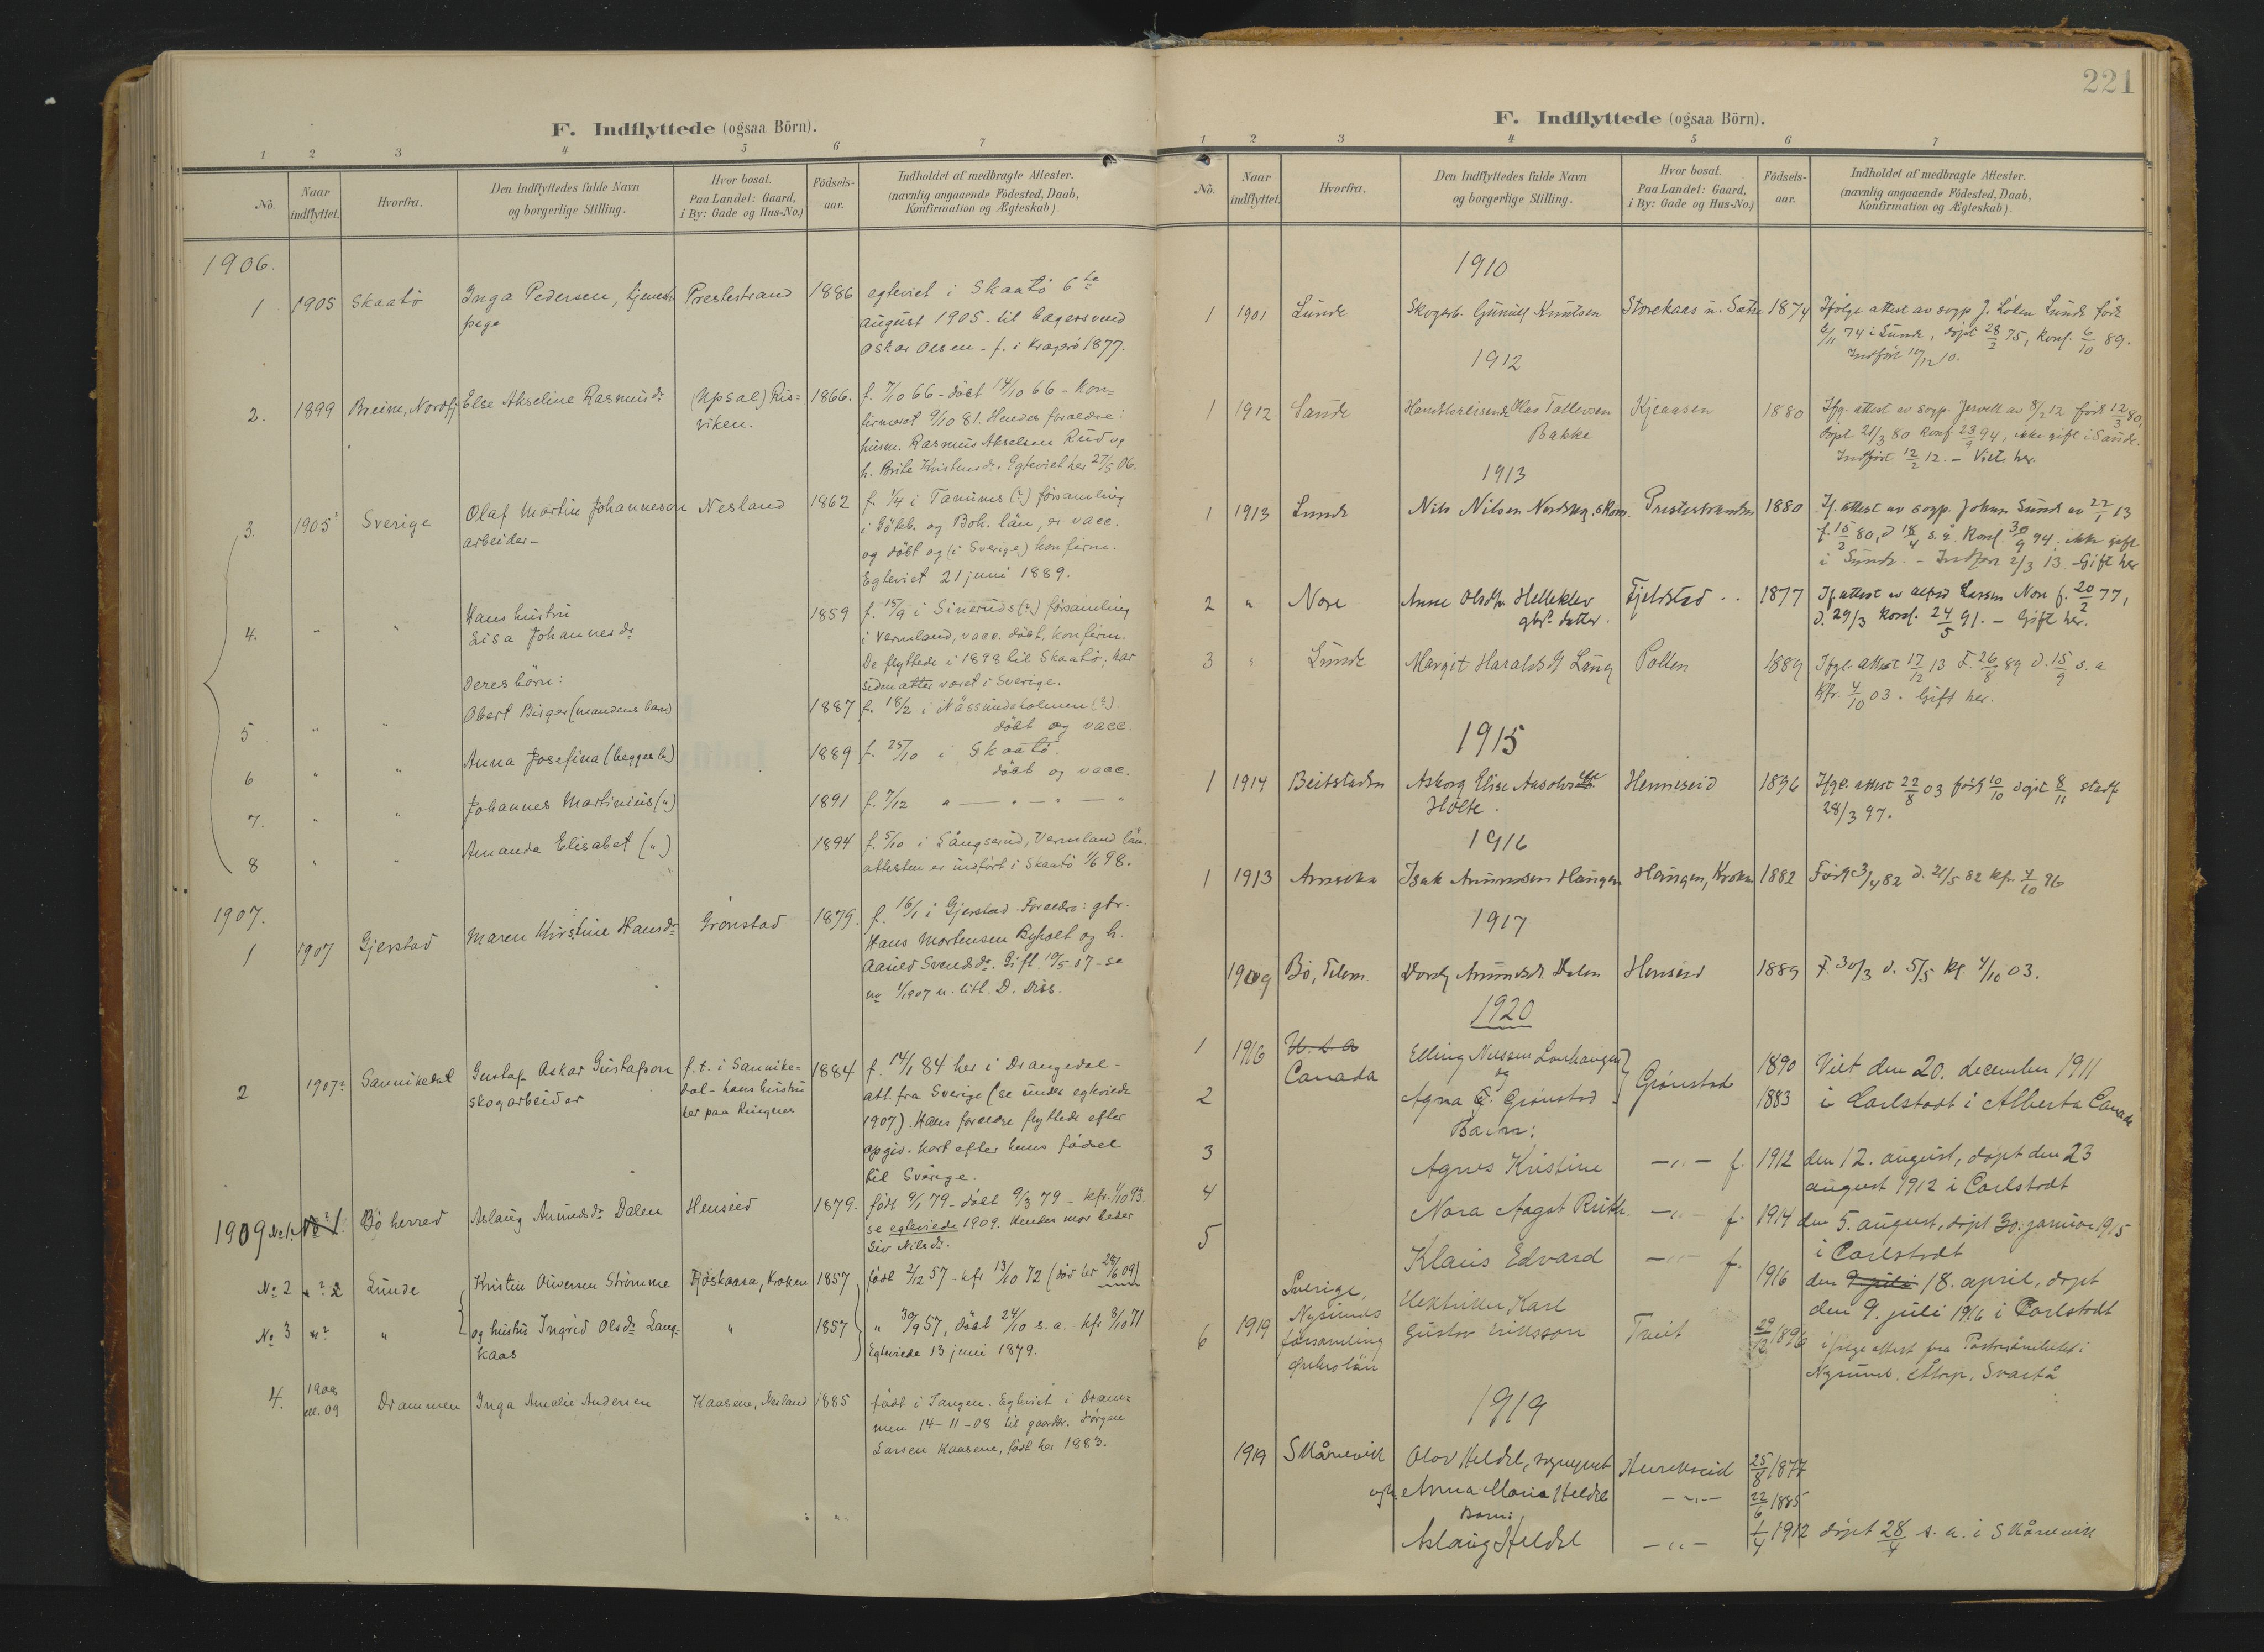 F. Indflyttede (ogsaa Börn).
1 2 3 4 5 6 7
No. Naar indflyttet. Hvorfra. Den Indflyttedes fulde Navn og borgerlige Stilling. Hvor bosat. Paa Landet: Gaard, i By: Gade og Hus-No.) Födsels-aar. Indholdet af medbragte Attester. (navnlig angaaende Födested, Daab, Konfirmation og Ægteskab).
1906.
1 1905 Skaatö Inga Pedersen, tjenest- Prestestrand 1886 egteviet i Skaatö 6te
pige august 1905 - til bagersvend
Oskar Olsen - f. i Kragerö 1877.
2. 1899 Breim, Nordfj. Else Akseline Rasmusdr (Upsal) Ris- 1866. f. 7/10 66 - döbt 14/10 66 - Kon-
viken. firmeret 9/10 81. Hendes foraeldre:
husm. Rasmus Akselsen Rud og
h. Brite Kristensdr. Egteviet her 27/5 06.
3. 1905? Sverige Olaf Martin Johannesen Nesland 1862 f. 1/4 i Tanums (?) församling
arbeider - i Götb. og Boh. län, er vacc.
og döbt og (i Sverige) konfirm.
Egteviet 21 juni 1889.
4. " " Hans hustru 1859 f. 15/9 i Sineruds (?) församling
Lisa Johannesdr i Vermland, vacc. döbt, konfirm.
De flyttede i 1898 til Skaatö, har
Deres börn: siden atter været i Sverige.
5 " " Obert Birger (mandens barn) 1887 f. 18/2 i Nässundsholmen (?).
döbt og vacc.
6 " " Anna Josefina (begges b.) 1889 f. 25/10 i Skaatö.
döbt og vacc.
7. " " Johannes Martinius (") 1891 f. 7/12 " — " — " — "
8 " " Amanda Elisabet (") 1894 f. 5/10 i Långserud, Vermland län.
attesten er indfört i Skaatö 1/6 98.
1907.
1 1907 Gjerstad Maren Kirstine Hansdr Grönstad 1879. f. 16/1 i Gjerstad. Foraeldre: gbr.
Hans Mortensen Byholt og h.
Aasild Svendsdr. Gift 19/5 07 - se
no 1/1907 u. litt. D. Diss.
2 1907? Sannikedal Gustaf Oskar Gustafson f.t. i Sannike- 1884 f. 14/1 84 her i Drangedal -
skogarbeider dal - hans hustru att. fra Sverige (se under egteviede
her paa Ringnes 1907). Hans foraeldre flyttede efter
opgiv. kort efter hans födsel
til Sverige.
1909 No 1. Bö herred Aslaug Amundsdr Dalen Henseid 1879. födt 9/1 79 - döbt 9/3 79 - kfr. 1/10 93.
se egteviede 1909. Hendes mor heder
Liv Nilsdr.
No 2 Lunde Kristen Oluvsen Strömme Fjöskaasa, Kroken 1857 födt 2/12 57 - kfr 13/10 72 (död her 25/6 09)
No 3 " og hustru Ingrid Olsdr Lang- " 1857 " 30/9 57, döbt 24/10 s.a. - kfr 8/10 71
kaas Egteviede 13 juni 1879.
4. 1908 ell. 09 Drammen Inga Amalie Andersen Kaasene, Nesland 1885 födt i Tangen. Egteviet i Dram-
men 14-11-08 til gaardbr. Jörgen
Larsen Kaasene, födt her 1883.
221
F. Indflyttede (ogsaa Börn).
1 2 3 4 5 6 7
No. Naar indflyttet. Hvorfra. Den Indflyttedes fulde Navn og borgerlige Stilling. Hvor bosat. Paa Landet: Gaard, i By: Gade og Hus-No.) Födsels-aar. Indholdet af medbragte Attester. (navnlig angaaende Födested, Daab, Konfirmation og Ægteskab).
1910
1 1901 Lunde Skogarb. Gunulf Knutsen Storekaas u. Sætre 1874 Ifølge attest av sogp. J. Löken Lunde född
2/11 74 i Lunde, döpt 28/2 75, konf. 6/10 89.
Indført 10/12 10.
1912
1 1912 Sande Handelsreisende Olas Tallevsen Kjeaasen 1880 Ifg. attest av sogp. Jervell av 8/2 12 född 12/3 80,
Bakke döpt 21/3 80 konf 23/9 94, ikke gift i Sande.
Indført 12/2 12. - Viet her.
1913
1 1913 Lunde Nils Nilsen Nordskog, skom. Prestestranden 1880 If. attest av sogp. Johan Lunde av 22/1 13
f. 15/2 80, d 18/4 s.å. Konf. 30/9 94. ikke gift
i Lunde. - Indført 2/3 13. - Gift her
2 " Nore Anne Olsdtr Helleklev Fjeldstad 1877 If. attest av Alfred Larsen Nore f. 20/2 77,
gbr. datter. d. 29/3 Konf. 24/5 91. - Gift her.
3 " Lunde Margit Haraldsd. Lang Pollen 1889 Ifgl. attest 17/12 13 F. 26/8 89 d. 15/9 s.a
Kfr. 4/10 03. Gift her.
1915
1 1914 Beitstaden Asborg Elise Aasolvsdtr Henneseid 1896 Ifgl. attest 22/8 03 född 10/10 døpt 8/11 stadf
Holte. 28/3 97.
1916
1 1913 Amerika Isak Amundsen Haugen Haugen, Kroken 1882 Född 3/4 82 d. 21/5 82 kfr. 4/10 96
1917
1909 Bö, Telem. Dordy Amundsd. Dalen Henseid 1889 F. 30/3 d. 5/5 kf. 4/10 03.
1920
1 1916 U.S.A Elling Nilssen Lonhaugen 1890 Viet den 20. december 1911
Canada og Grönstad
2 Agna G. Grönstad 1883 i Carlstadt i Alberta Canada
Barn:
3 Agnes Kristine — " — f. 1912 den 12. august, døpt den 23
august 1912 i Carlstadt
4 Nora Aagot Ruth — " — f. 1914 den 5. august, døpt 30. januar 1915
i Carlstadt
5 Klaus Edvard — " — f. 1916 den 9 juli 18. april, døpt
den 9. juli 1916 i Carlstadt
6 1919 Sverige, Elektriker Karl Treit 29/12 1896 ifølge attest fra Pastorsämbetet i
Nysunds Gustav Eriksson Nysund. Åtorp, Svartå
församling
Örebro län
1919
1919 Skånevik Olav Heldal, sogneprest Henneseid 25/8 1877
og h. Anna Maria Heldal — " — 22/6 1885
Barn:
Aslaug Heldal — " — 1/4 1912 döpt 28/4 s.a. i Skånevik